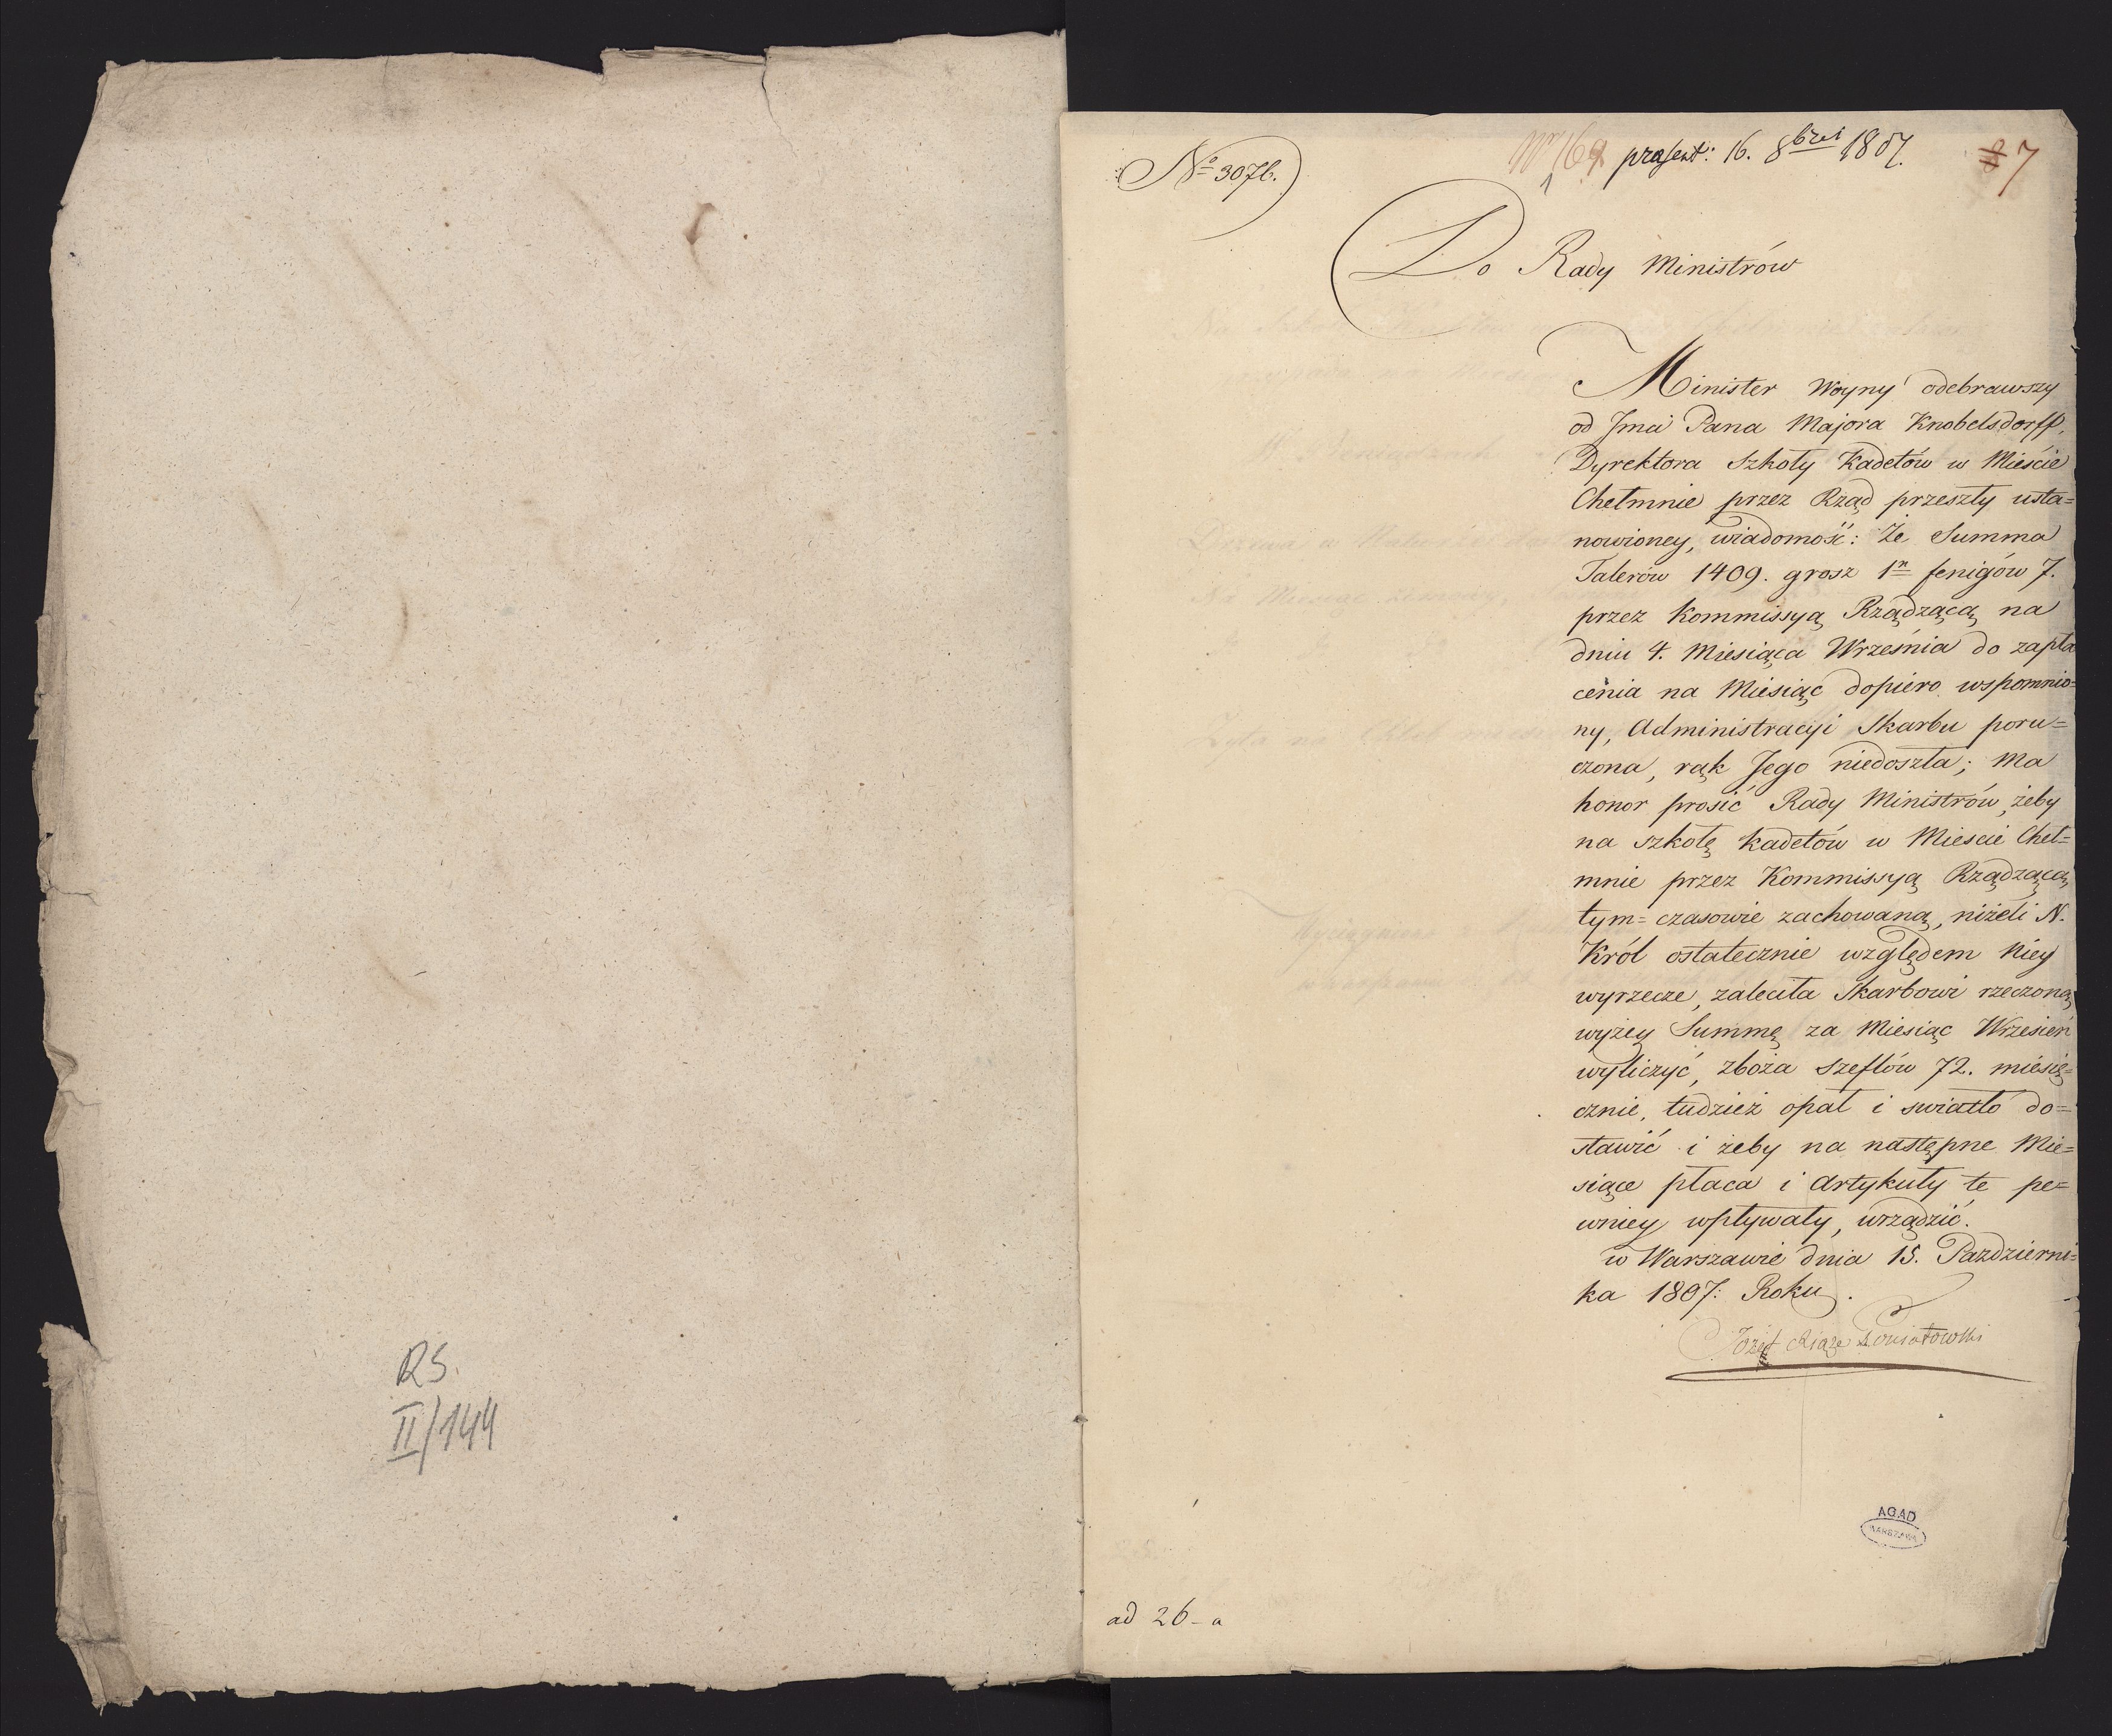 RS.
II/144
No 3076.
No 169. præsent: 16. 8brei 1807.
7
Do Rady Ministrów
Minister Woyny odebrawszy
od Jmci Pana Majora Knobelsdorff,
Dyrektora Szkoły Kadetów w Mieście
Chełmnie przez Rząd przeszły usta=
nowioney, wiadomość: Że Summa
Talerów 1409. grosz 1n fenigów 7.
przez Kommissyą Rządzącą na
dniu 4. Miesiąca Września do zapła
cenia na Miesiąc dopiero wspomnio=
ny, Administracyi Skarbu poru=
czona, rąk Jego niedoszła; ma
honor prosić Rady Ministrów, żeby
na szkołę kadetów w Miescie Cheł=
mnie przez Kommissyą Rządzącą
tym=czasowie zachowaną, niżeli N.
Król ostatecznie względem Niey
wyrzecze, zaleciła Skarbowi rzeczoną
wyżey Summę za Miesiąc Wrzesień
wyliczyć, zboża szeflów 72. miesię=
cznie, tudzież opał i swiatło do=
stawić i żeby na następne Mie=
siące płaca i Artykuły te pe=
wniey wpływały, urządzić.
w Warszawie dnia 15. Pazdzierni=
ka 1807. Roku.
Józef Xiąże Poniatowski
AGAD
WARSZAWA
ad 26-a